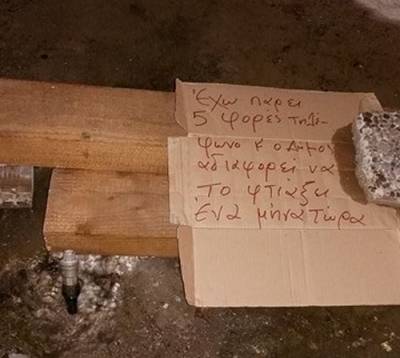 Έχω πάρει
5 φορές τηλέ-
φωνο κ ο Δήμος
αδιαφορεί να
Το φτιάξει
Ένα μήνα τώρα